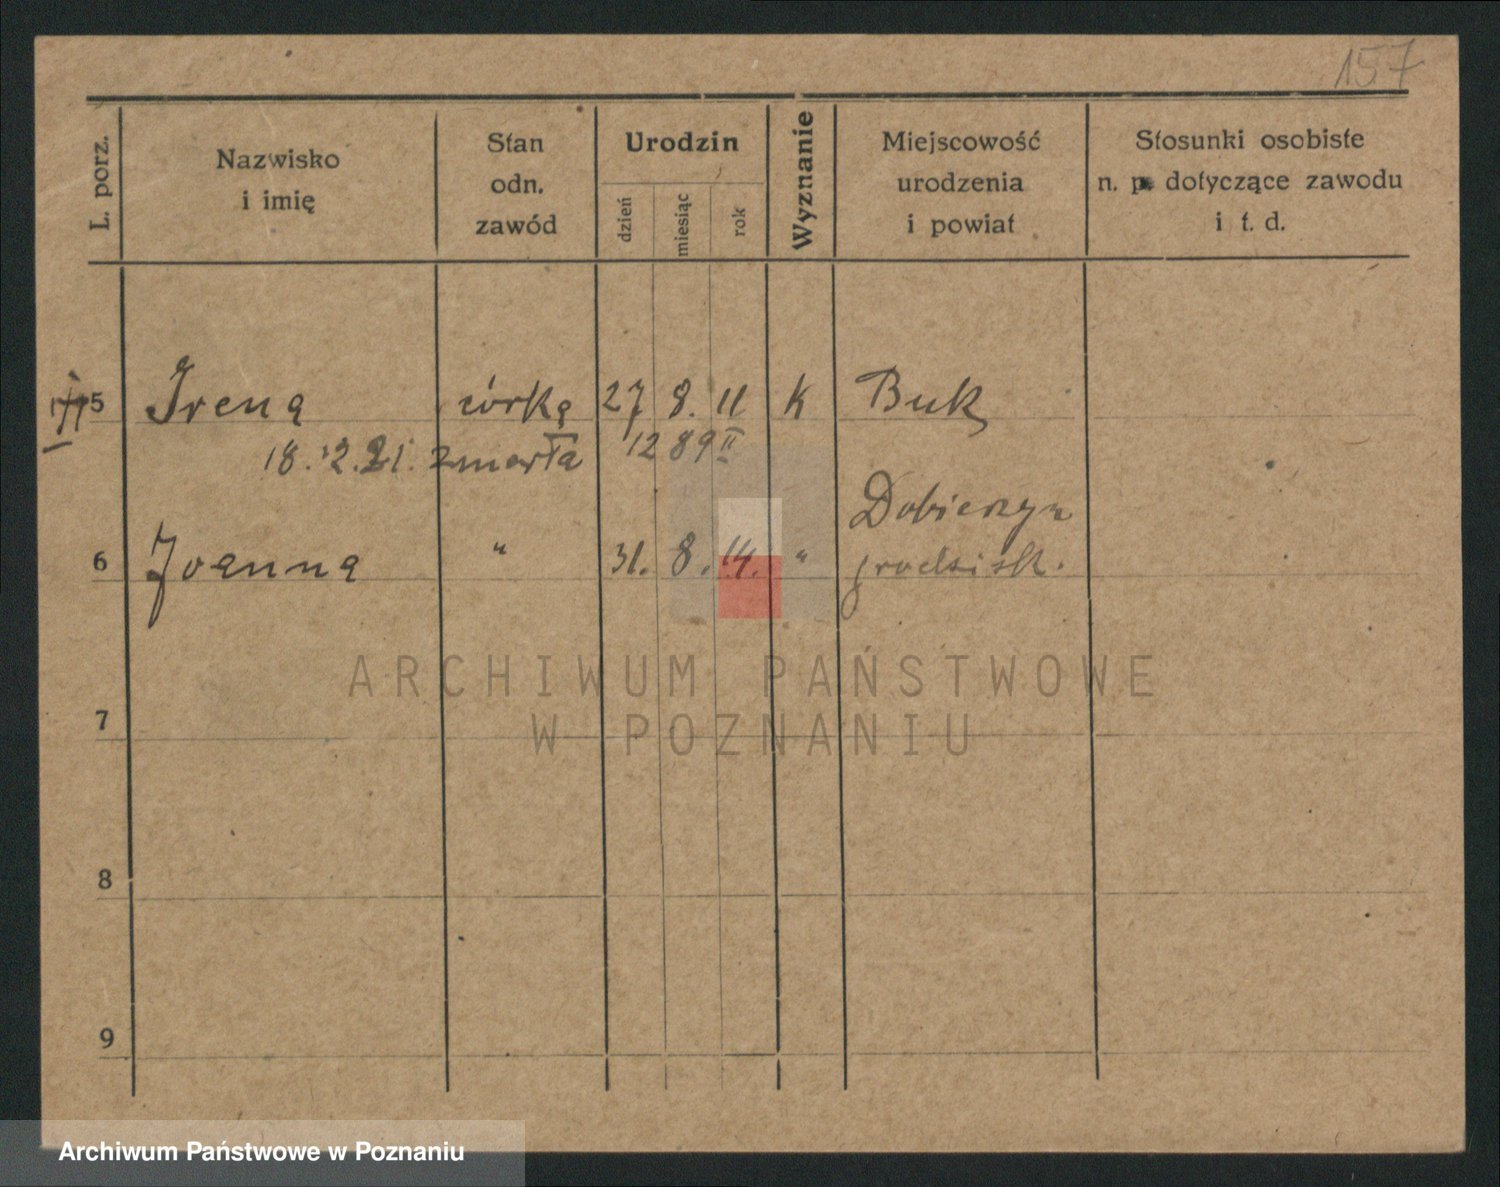 157
L. porz.
Nazwisko
i imię
Stan
odn.
zawód
Urodzin
dzień
miesiąc
rok
Wyznanie
Miejscowość
urodzenia
i powiat
Stosunki osobiste
n. p. dotyczące zawodu
i t. d.
5 Irena córka 27 8. 11 K Buk
18.12.21. zmarła 1289 II
Dobieżyn
6 Joanna " 31. 8. 14. " grodzisk.
7
8
9
ARCHIWUM PAŃSTWOWE
W POZNANIU
Archiwum Państwowe w Poznaniu